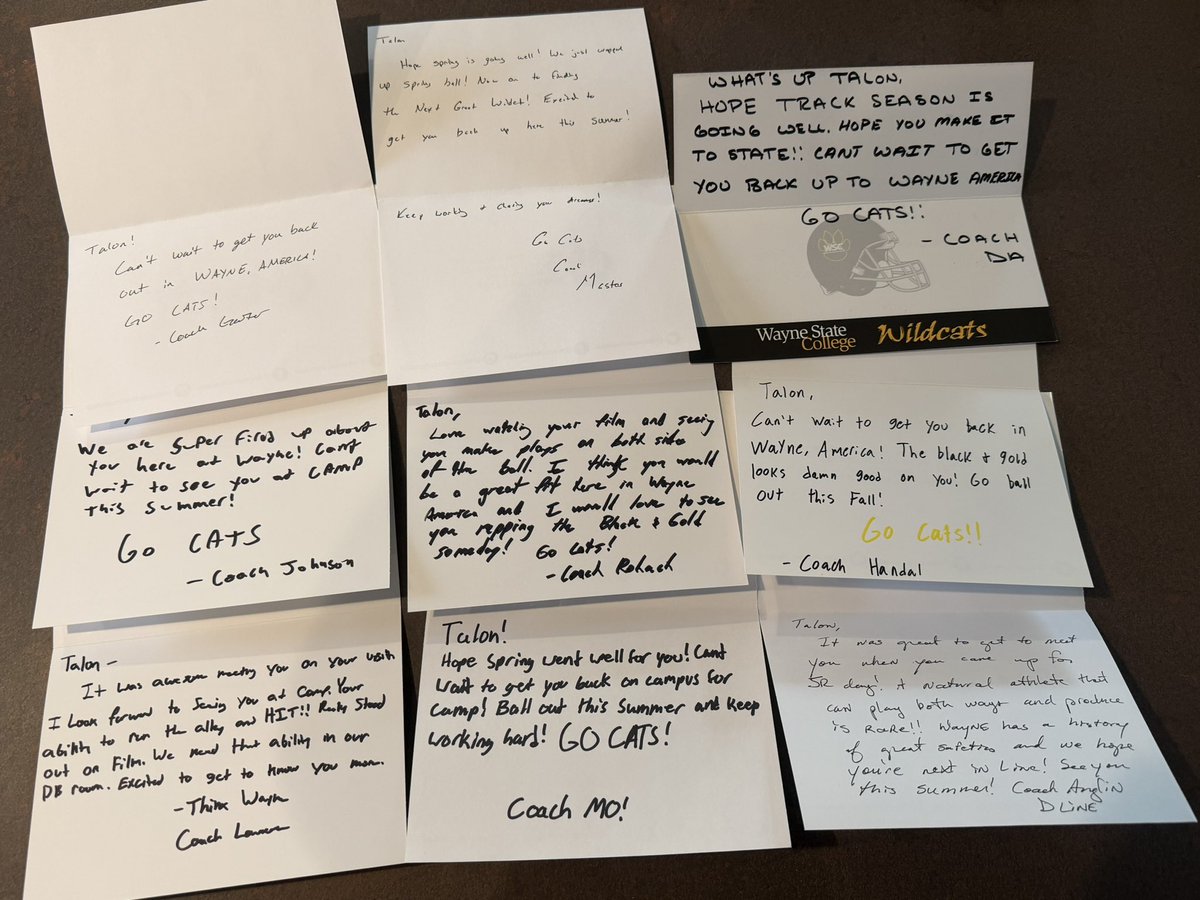 Talon!
Can't wait to get you back
out in WAYNE, AMERICA!
GO CATS!
- Coach
Talon
Hope spring is going well! We just wrapped
up spring ball! Now on to finding
the Next Great Wildcat! Excited to
get you back up here this summer!
Keep working & chasing your dreams!
Go Cats
Coach
Masters
WHAT'S UP TALON,
HOPE TRACK SEASON IS
GOING WELL. HOPE YOU MAKE IT
TO STATE!! CANT WAIT TO GET
YOU BACK UP TO WAYNE AMERICA
GO CATS!!
- COACH
DA
WSC
Wayne State
College
Wildcats
We are super fired up about
you here at Wayne! Cant
wait to see you at CAMP
this summer!
GO CATS
- Coach Johnson
Talon,
Love watching your film and seeing
you make plays on both sides
of the ball. I think you would
be a great fit here in Wayne
America and I would love to see
you repping the Black & Gold
someday! Go Cats!
- Coach Rohach
Talon,
Can't wait to get you back in
Wayne, America! The black & gold
looks damn good on you! Go ball
out this Fall!
Go Cats!!
- Coach Handal
Talon -
It was awesome meeting you on your visit.
I Look forward to seeing you at Camp. Your
ability to run the alley and HIT!! Really Stood
out on Film. We need that ability in our
DB room. Excited to get to know you more.
- Think Wayne
Coach
Talon!
Hope Spring went well for you! Cant
wait to get you back on campus for
camp! Ball out this Summer and keep
working hard! GO CATS!
Coach MO!
Talon,
It was great to get to meet
you when you came up for
JR day! A natural athlete that
can play both ways and produce
is RARE!! Wayne has a history
of great safeties and we hope
you're next in Line! See you
this summer! Coach Anglin
D LINE